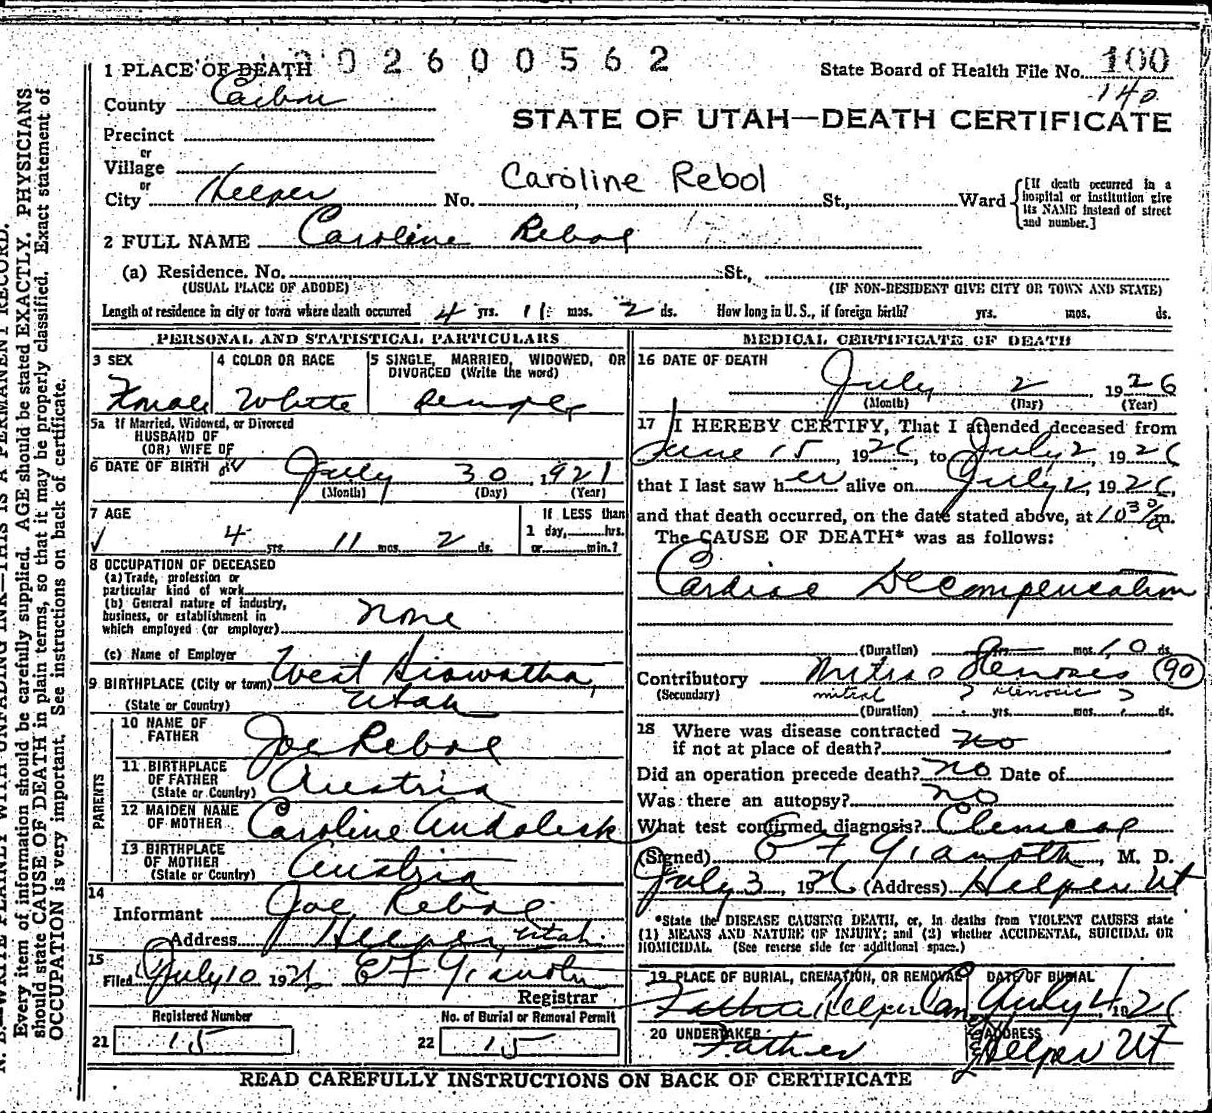 302600562
1 PLACE OF DEATH
State Board of Health File No. 100
140
County Carbon
STATE OF UTAH—DEATH CERTIFICATE
Precinct
or
Village
or
Caroline Rebol
City Helper No. St., Ward {[If death occurred in a hospital or institution give its NAME instead of street and number.]
2 FULL NAME Caroline Rebol
(a) Residence. No. St.,
(USUAL PLACE OF ABODE) (IF NON-RESIDENT GIVE CITY OR TOWN AND STATE)
Length of residence in city or town where death occurred 4 yrs. 11 mos. 2 ds. How long in U. S., if foreign birth? yrs. mos. ds.
PERSONAL AND STATISTICAL PARTICULARS
3 SEX 4 COLOR OR RACE 5 SINGLE, MARRIED, WIDOWED, OR DIVORCED (Write the word)
Female White Single
5a If Married, Widowed, or Divorced
HUSBAND OF
(OR) WIFE OF
6 DATE OF BIRTH July 30, 1921
(Month) (Day) (Year)
7 AGE If LESS than
4 yrs. 11 mos. 2 ds. 1 day, hrs. or min.?
8 OCCUPATION OF DECEASED
(a) Trade, profession or
particular kind of work
(b) General nature of industry,
business, or establishment in
which employed (or employer) none
(c) Name of Employer
9 BIRTHPLACE (City or town) West Hiawatha,
(State or Country) Utah
PARENTS
10 NAME OF FATHER Joe Rebol
11 BIRTHPLACE OF FATHER (State or Country) Austria
12 MAIDEN NAME OF MOTHER Caroline
13 BIRTHPLACE OF MOTHER (State or Country) Austria
14
Informant Joe Rebol
Address Helper, Utah
15
Filed July 10 1926 E F Gianotti
Registrar
Registered Number No. of Burial or Removal Permit
21 15 22 15
MEDICAL CERTIFICATE OF DEATH
16 DATE OF DEATH
July 2 1926
(Month) (Day) (Year)
17 I HEREBY CERTIFY, That I attended deceased from
June 15, 1926, to July 2, 1926
that I last saw her alive on July 2, 1926,
and that death occurred, on the date stated above, at 10 30/a m.
The CAUSE OF DEATH* was as follows:
Cardiac Decompensation
(Duration) yrs. mos. 10 ds.
Contributory Mitral Stenosis 90
(Secondary) mitral ? stenosis ?
(Duration) yrs. mos. ds.
18 Where was disease contracted
if not at place of death? no
Did an operation precede death? no Date of
Was there an autopsy? no
What test confirmed diagnosis? Clinical
(Signed) E F Gianotti, M. D.
July 3, 1926 (Address) Helper Ut
*State the DISEASE CAUSING DEATH, or, in deaths from VIOLENT CAUSES state
(1) MEANS AND NATURE OF INJURY; and (2) whether ACCIDENTAL, SUICIDAL OR
HOMICIDAL. (See reverse side for additional space.)
19 PLACE OF BURIAL, CREMATION, OR REMOVAL DATE OF BURIAL
Helper July 4, 1926
20 UNDERTAKER ADDRESS
Father Helper Ut
READ CAREFULLY INSTRUCTIONS ON BACK OF CERTIFICATE
N. B.—WRITE PLAINLY WITH UNFADING INK—THIS IS A PERMANENT RECORD.
Every item of information should be carefully supplied. AGE should be stated EXACTLY. PHYSICIANS
should state CAUSE OF DEATH in plain terms, so that it may be properly classified. Exact statement of
OCCUPATION is very important. See instructions on back of certificate.